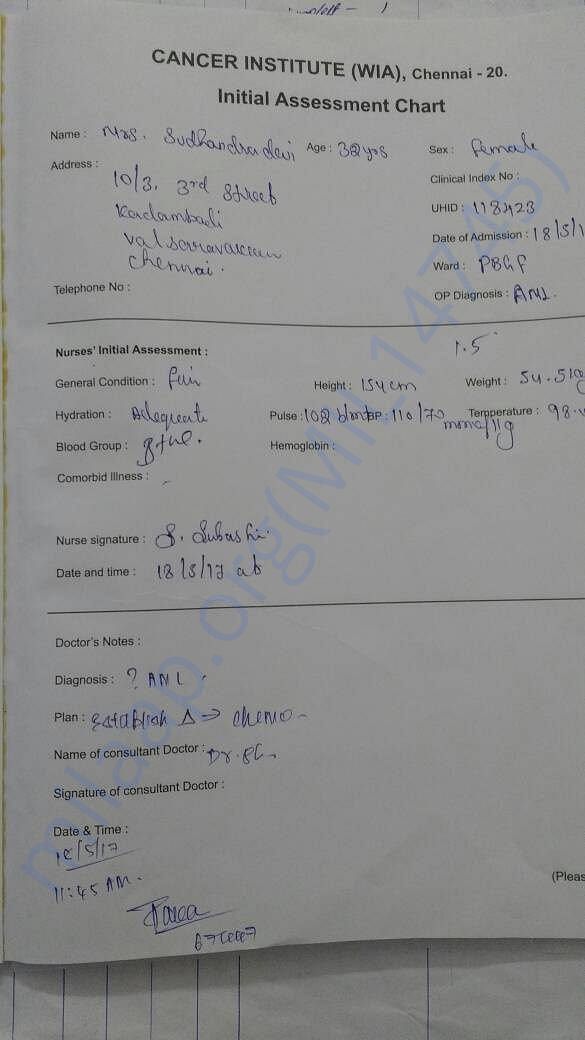 CANCER INSTITUTE (WIA), Chennai - 20.
Initial Assessment Chart
Name : Mrs. Sudhandradevi Age : 32 yrs Sex : Female
Address : 10/3, 3rd Street
Clinical Index No :
Kadambadi
UHID : 118423
Valsaravakkam
Date of Admission : 18/5/1
Chennai.
Ward : PBGF
Telephone No :
OP Diagnosis : AML.
1.5
Nurses' Initial Assessment :
General Condition : fair Height : 154 cm Weight : 54.5
Hydration : Adequate Pulse : 102 BP : 110/70 mm Temperature : 98.
Blood Group : Hemoglobin :
Comorbid Illness : -
Nurse signature : S.
Date and time : 18/5/17 at
Doctor's Notes :
Diagnosis : ? AML
Plan : Establish Δ ⇒ chemo -
Name of consultant Doctor : Dr.
Signature of consultant Doctor :
Date & Time :
18/5/17
11:45 AM.
(Pleas
milaap.org(MIL14745)